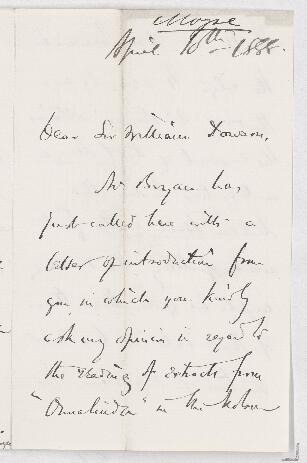 Moyse
April 10th 1888.
Dear Sir William Dawson,
Mr Bryan has
just called here with a
letter of introduction from
you, in which you kindly
ask my opinion in regard to
the reading of extracts from
"Ormalinda" in the